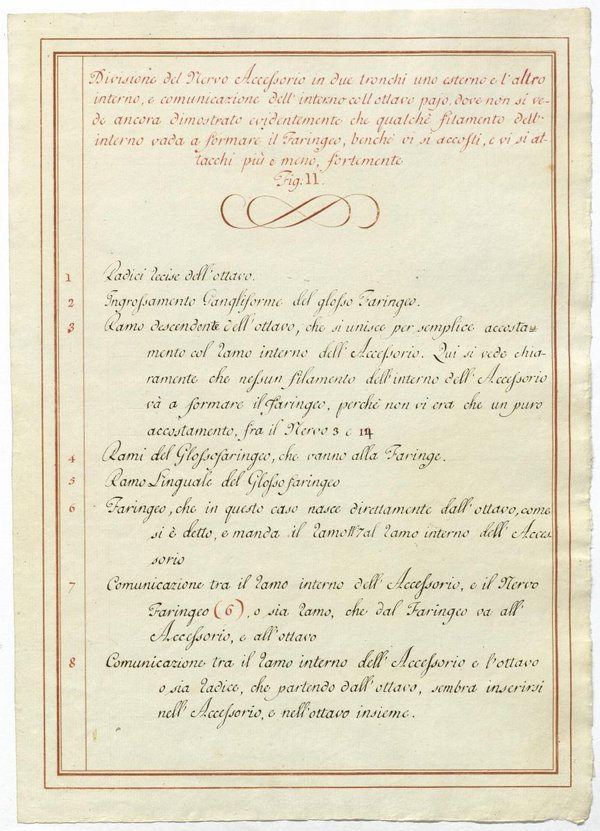 Divisione del Nervo Accessorio in due tronchi uno esterno e l'altro
interno, e comunicazione dell'interno coll'ottavo pajo, dove non si ve-
de ancora dimostrato evidentemente che qualche filamento dell'
interno vada a formare il Faringeo, benchè vi si accosti, e vi si at-
tacchi più e meno, fortemente
Fig. 11.
1 Radici recise dell'ottavo.
2 Ingrossamento Gangliforme del glosso Faringeo.
3 Ramo descendente dell'ottavo, che si unisce per semplice accosta-
mento col ramo interno dell'Accessorio. Qui si vede chia-
ramente che nessun filamento dell'interno dell'Accessorio
và a formare il faringeo, perchè non vi era che un puro
accostamento, fra il Nervo 3 e 14
4 Rami del Glossofaringeo, che vanno alla Faringe.
5 Ramo Linguale del Glossofaringeo
6 Faringeo, che in questo caso nasce direttamente dall'ottavo, come
si è detto, e manda il ramo 7 al ramo interno dell'Acces-
sorio
7 Comunicazione tra il ramo interno dell'Accessorio, e il Nervo
Faringeo (6), o sia ramo, che dal Faringeo va all'
Accessorio, e all'ottavo
8 Comunicazione tra il ramo interno dell'Accessorio e l'ottavo
o sia radice, che partendo dall'ottavo, sembra inserirsi
nell'Accessorio, e nell'ottavo insieme.